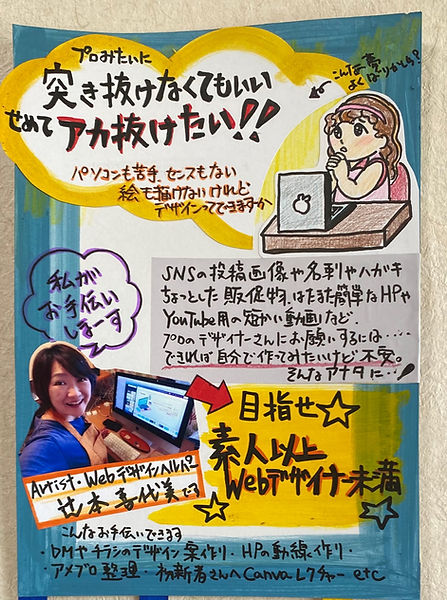 プロみたいに
突き抜けなくてもいい
せめてアカ抜けたい!!
こんな夢
よくばりかしら?
パソコンも苦手、センスもない
絵も描けないけれど
デザインってできますか
私が
お手伝い
しまーす
SNSの投稿画像や名刺やハガキ
ちょっとした販促物、はたまた簡単なHPや
YouTube用の短かい動画など、
プロのデザイナーさんにお願いするには‥‥
できれば自分で作ってみたいけど不安。
そんなアナタに‥!
目指せ
素人以上
Webデザイナー未満
Artist・Webデザインヘルパー
辻本喜代美です
こんなお手伝いできます
・DMやチラシのデザイン案作り・HPの動線作り・
アメブロ整理・初心者さんへCanvaレクチャー etc